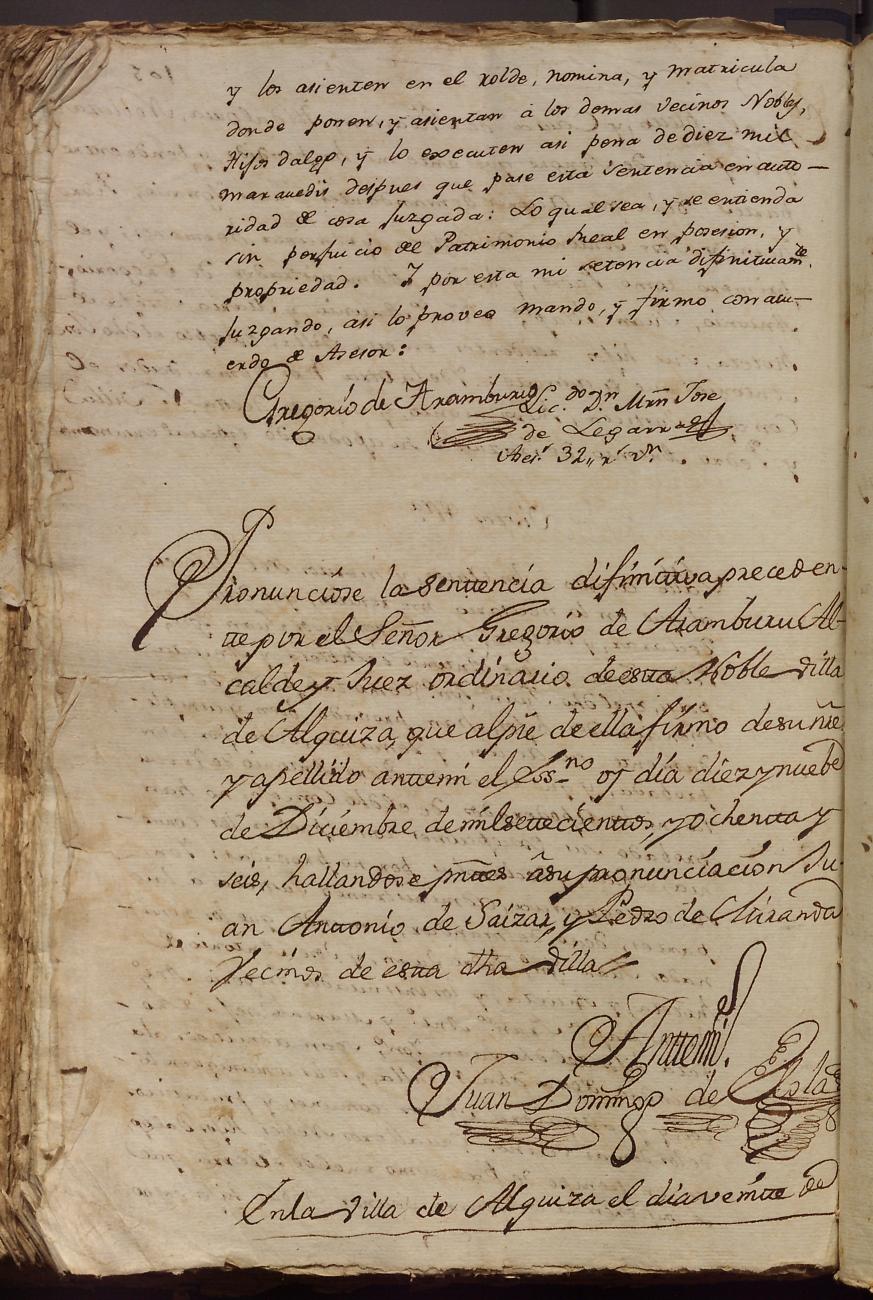 y los asienten en el rolde, nomina, y matricula
donde ponen, y asientan à los demas vecinos Nobles,
Hijos dalgo, y lo executen asi pena de diez mil
maravedis despues que pase esta sentencia en auto-
ridad de cosa Juzgada: Lo qual sea, y se entienda
sin perjuicio del Patrimonio Real en posesion, y
propriedad. Y por esta mi setencia difinitivamte.
Juzgando, asi lo proveo mando, y firmo con acu-
erdo de Asesor:
Gregorio de Aramburu Lic.do Dn. Mrn Jose
de Legarra
32,, rs. vn.
Pronunciose la senttencia difinitiva preceden-
tte por el Señor Gregorio de Aramburu Al-
calde y Juez ordinario de estta Noble villa
de Alquiza, que al pie de ella firmo de su ñre
y apellido anttemi el Essno oy dia diez y nuebe
de Diciembre de mil settecienttos, y ochentta y
seis, hallandose pnttes â su pronunciacion Ju-
an Anttonio de Saizar, y Pedro de Miranda
Vecinos de estta dha villa
Anttemi.
Juan Domingo de
En la villa de Alquiza el dia veintte de